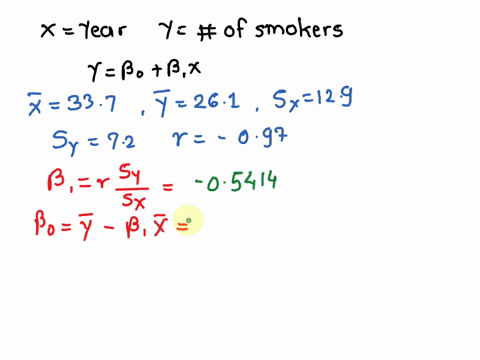 x = Year   Y = # of smokers
Y = β₀ + β₁x
x̄ = 33.7 , ȳ = 26.1 , Sx = 12.9
Sy = 7.2   r = - 0.97
β₁ = r Sy/Sx = -0.5414
β₀ = ȳ - β₁ x̄ =